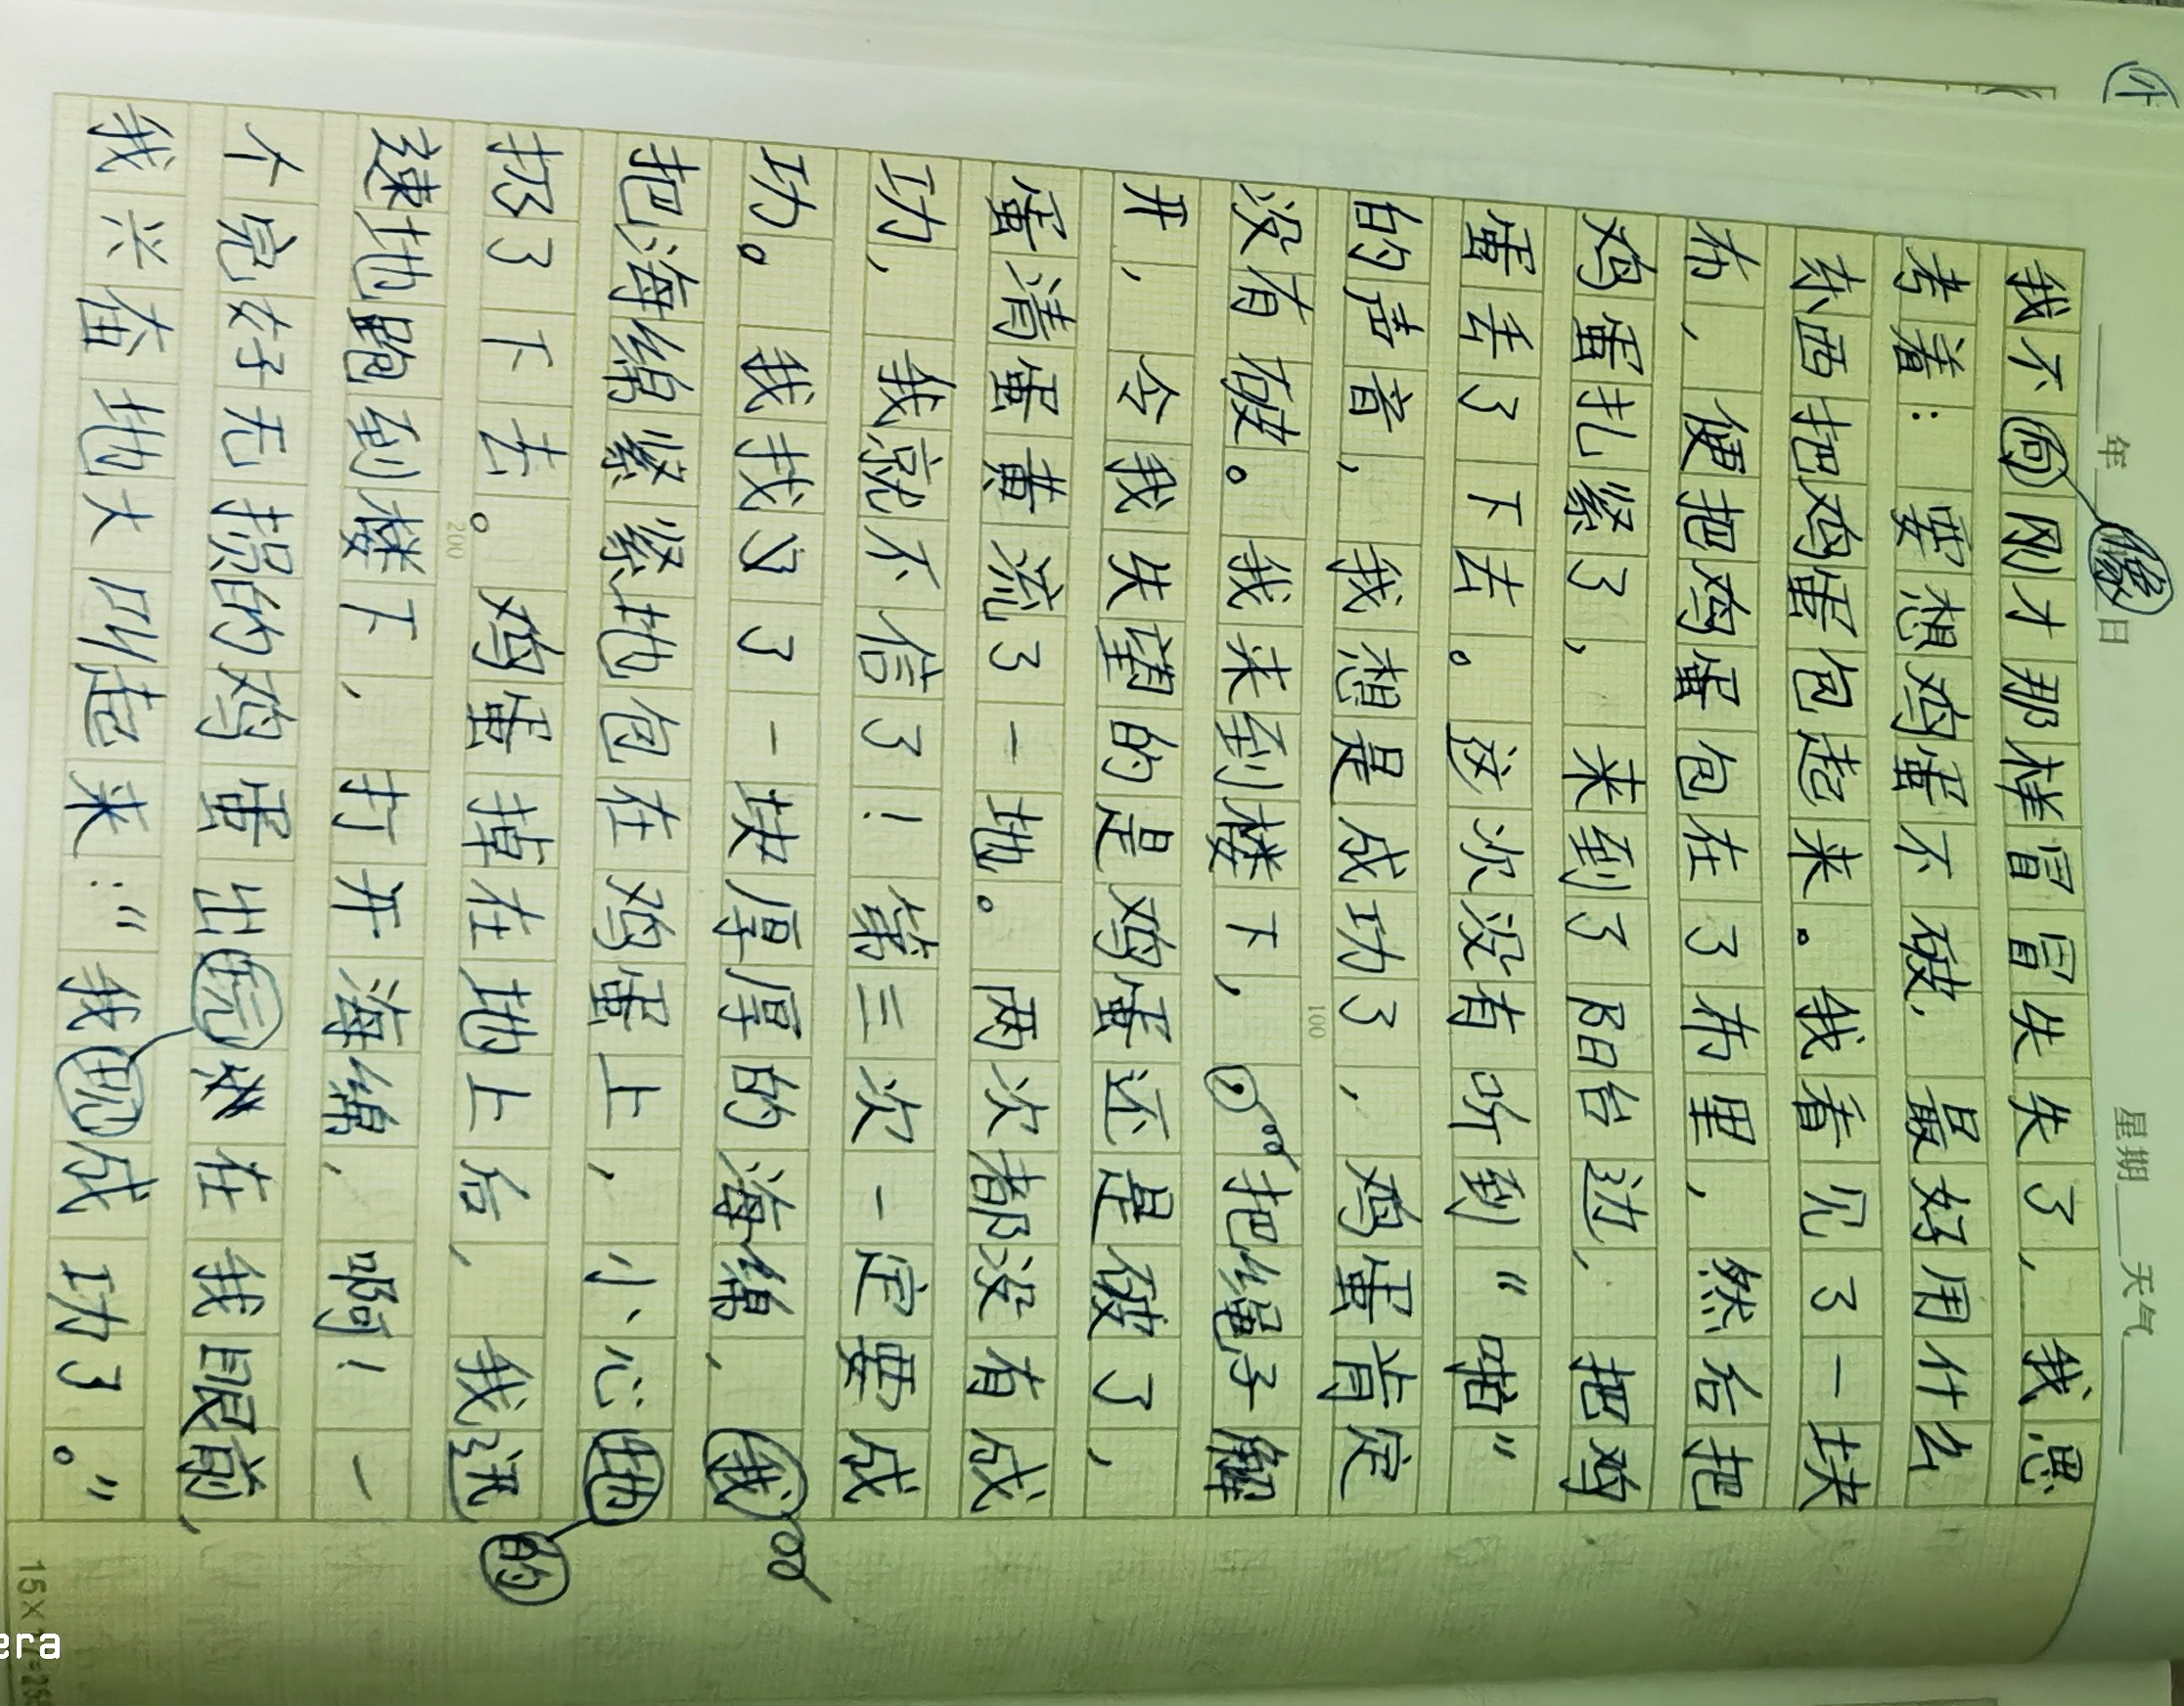 年 日 星期 天气
像
我不向刚才那样冒冒失失了，我思
考着：要想鸡蛋不破，最好用什么
东西把鸡蛋包起来。我看见了一块
布，便把鸡蛋包在了布里，然后把
鸡蛋扎紧了，来到了阳台边，把鸡
蛋丢了下去。这次没有听到“啪”
的声音，我想是成功了，鸡蛋肯定
100
没有破。我来到楼下，，把绳子解
开，令我失望的是鸡蛋还是破了，
蛋清蛋黄流了一地。两次都没有成
功，我就不信了！第三次一定要成
功。我找又了一块厚厚的海绵，我
把海绵紧紧地包在鸡蛋上，小心地
的
扔了下去。鸡蛋掉在地上后，我迅
200
速地跑到楼下，打开海绵，啊！一
个完好无损的鸡蛋出玩在我眼前，
我兴奋地大叫起来：“我现成功了。”